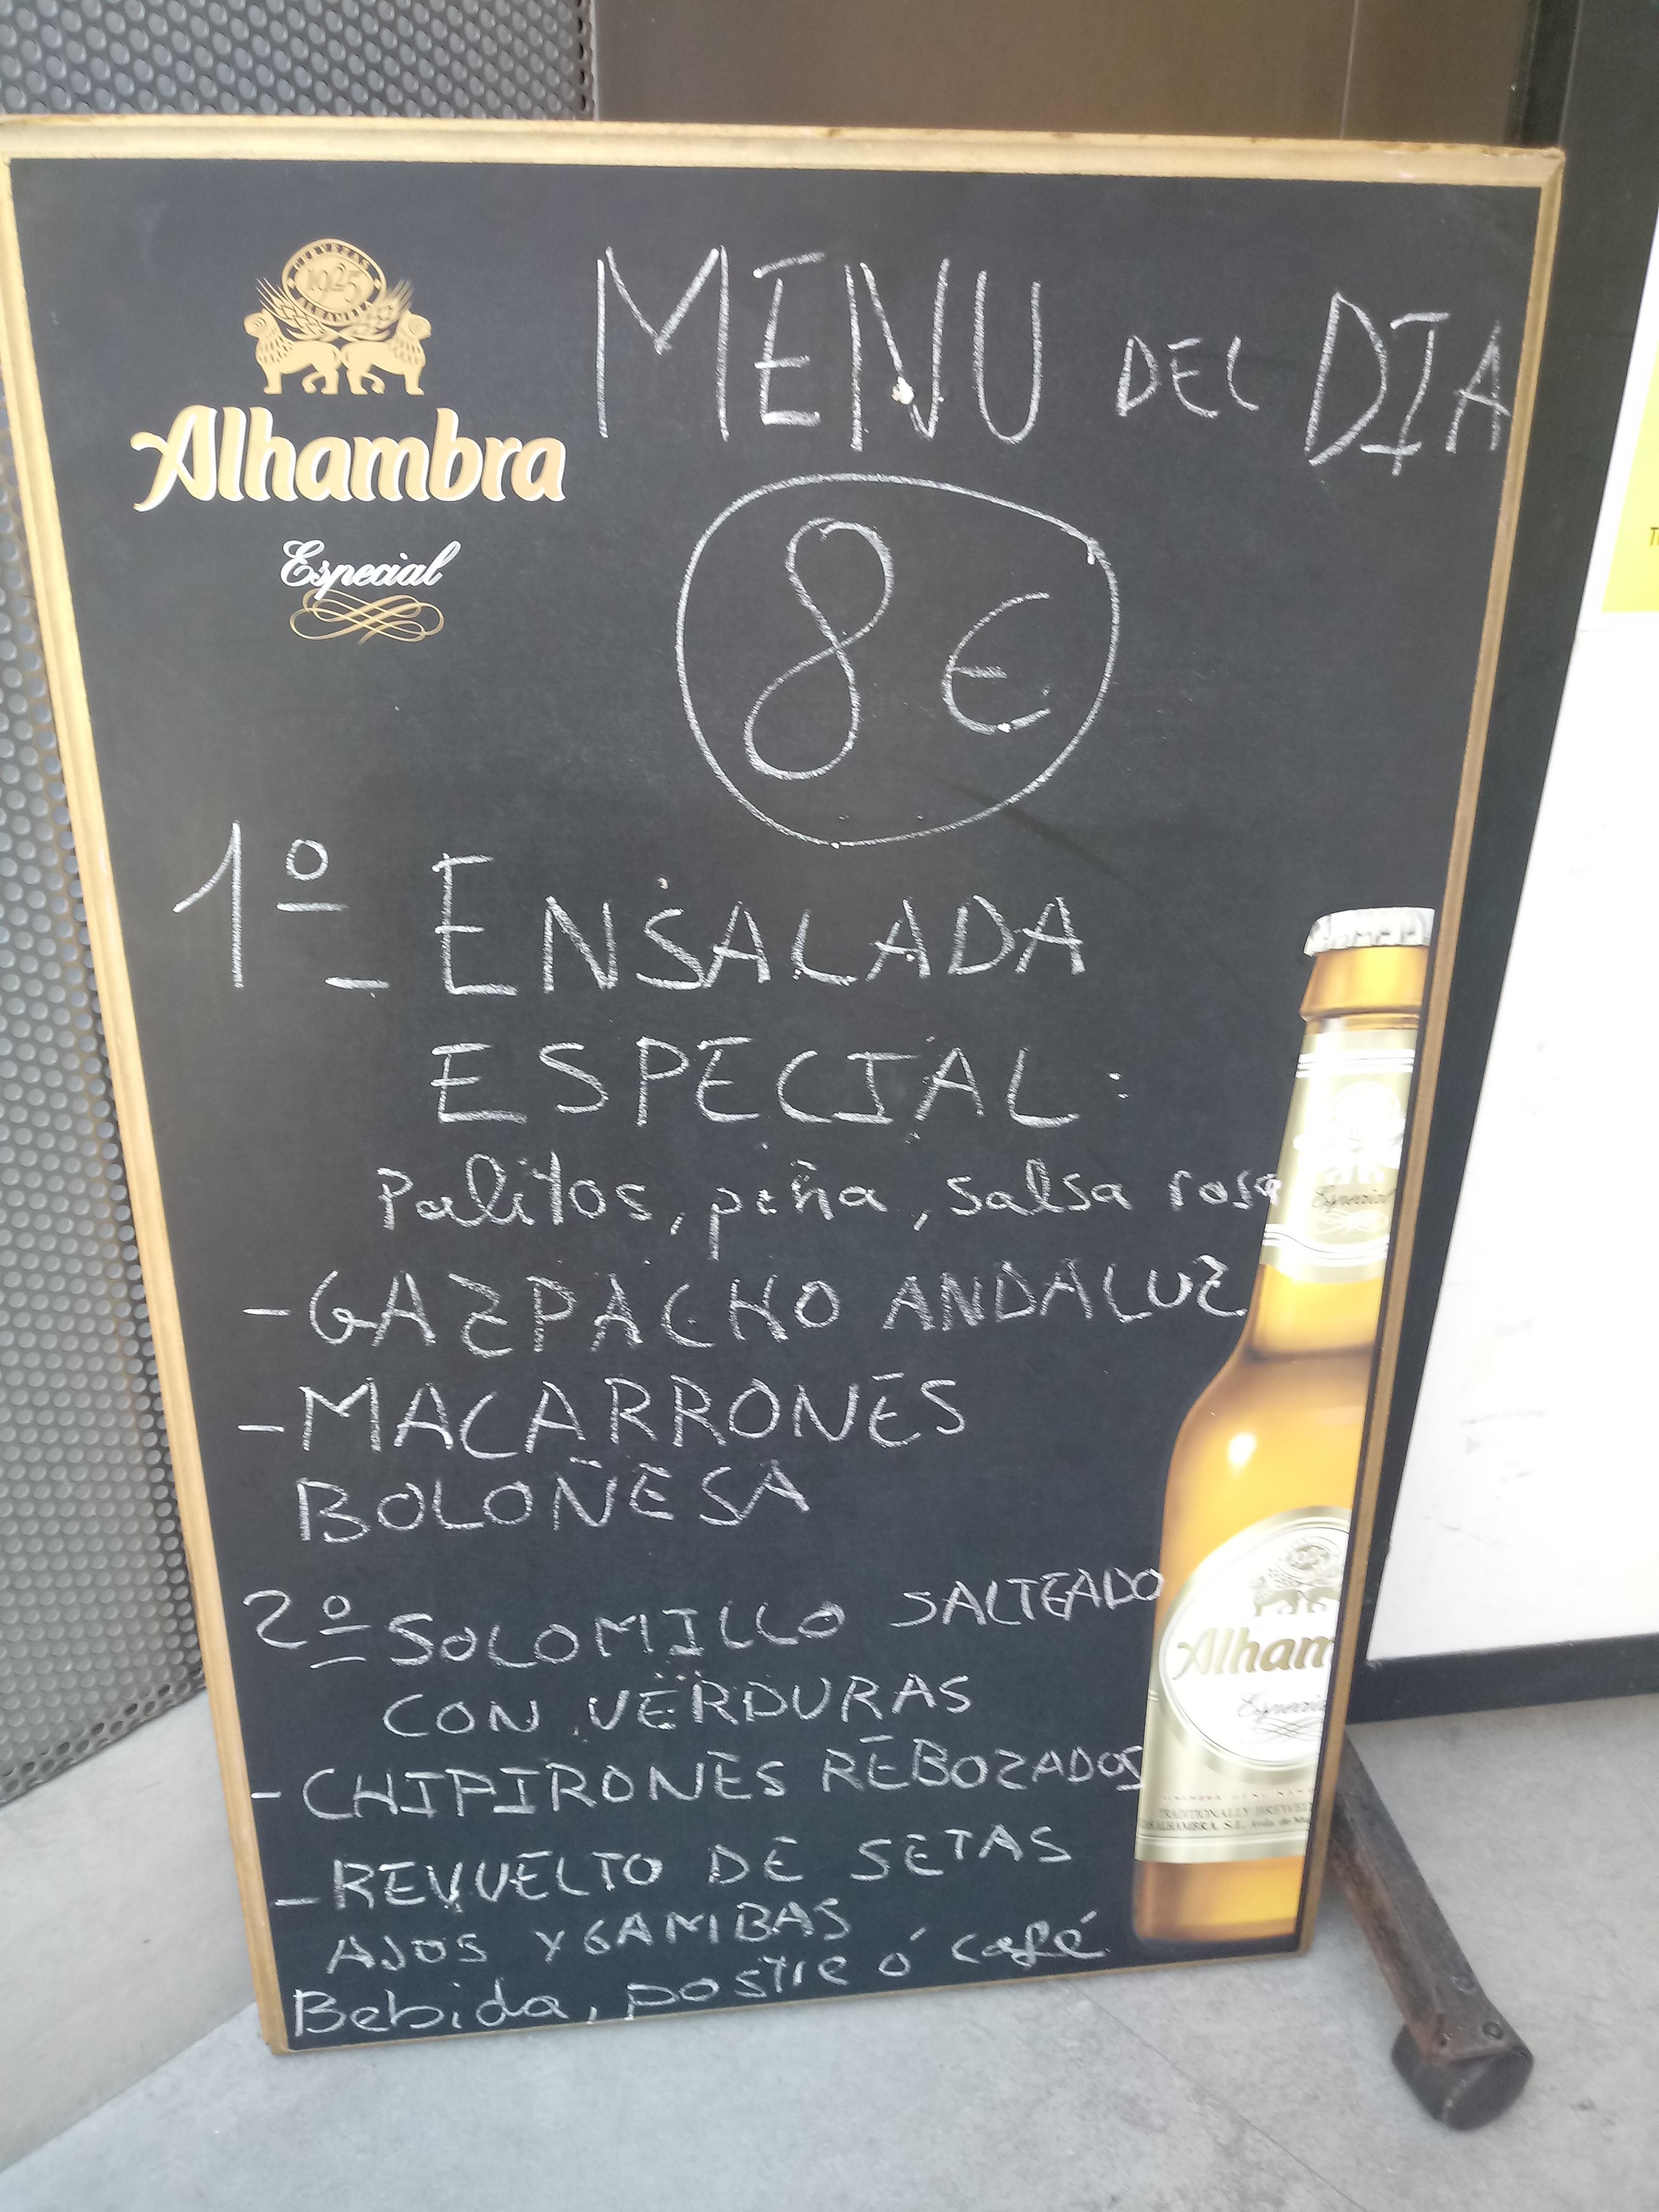 CERVEZAS
1925
ALHAMBRA
Alhambra
Especial
MENU DEL DIA
8€
1º- ENSALADA
ESPECIAL:
Palitos, piña, salsa rosa
- GAZPACHO ANDALUZ
- MACARRONES
BOLOÑESA
2º SOLOMILLO SALTEADO
CON VERDURAS
- CHIPIRONES REBOZADOS
- REVUELTO DE SETAS
AJOS Y GAMBAS
Bebida, postre ó café
Especial
1925
Alham
Especia
TRADITIONALLY BREWED
ALHAMBRA, S.L. Avda. de Mu